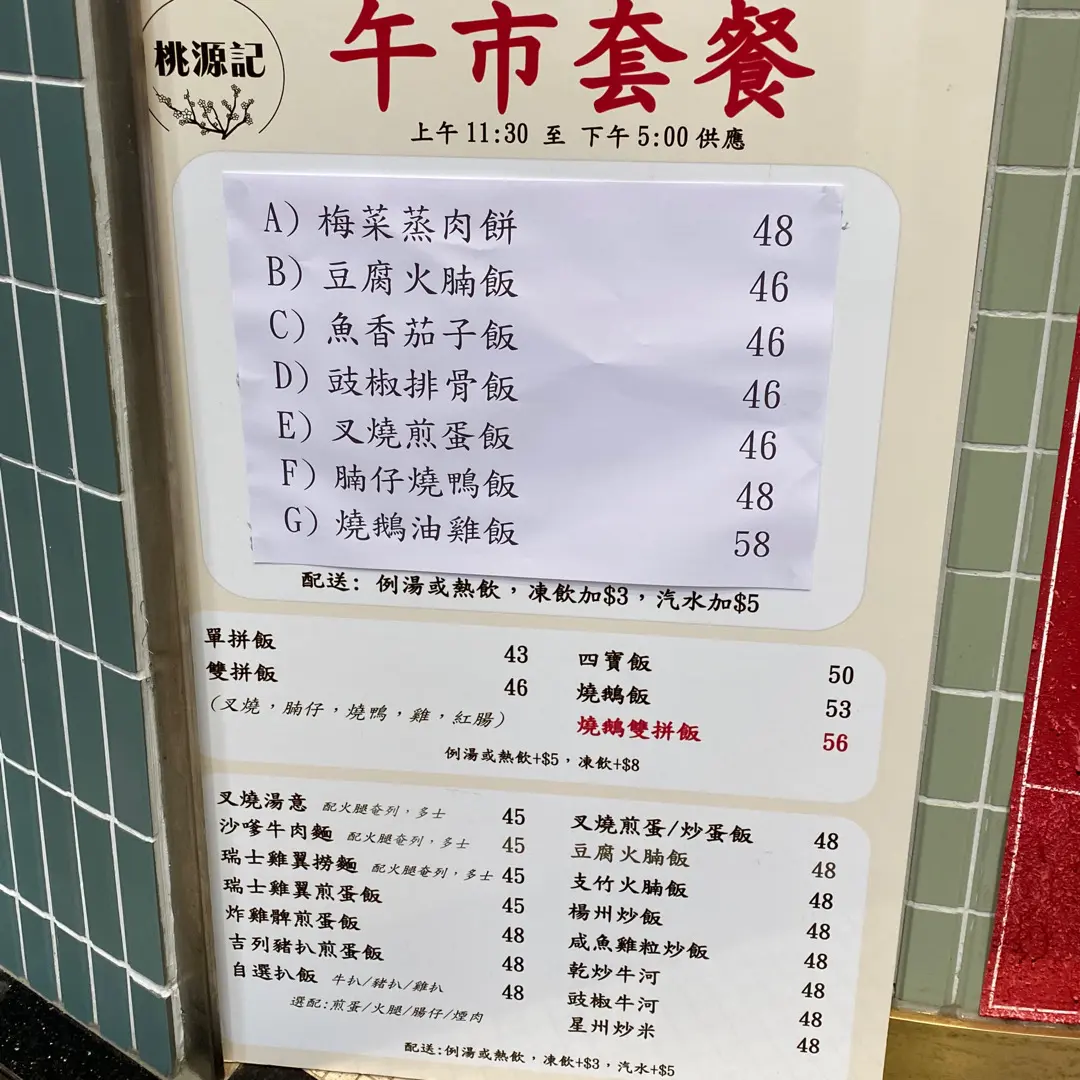 桃源記
午市套餐
上午 11:30 至 下午 5:00 供應
A) 梅菜蒸肉餅 48
B) 豆腐火腩飯 46
C) 魚香茄子飯 46
D) 豉椒排骨飯 46
E) 叉燒煎蛋飯 46
F) 腩仔燒鴨飯 48
G) 燒鵝油雞飯 58
配送: 例湯或熱飲，凍飲加$3，汽水加$5
單拼飯 43
雙拼飯 46
(叉燒，腩仔，燒鴨，雞，紅腸)
四寶飯 50
燒鵝飯 53
燒鵝雙拼飯 56
例湯或熱飲+$5，凍飲+$8
叉燒湯意 配火腿奄列，多士 45
沙嗲牛肉麵 配火腿奄列，多士 45
瑞士雞翼撈麵 配火腿奄列，多士 45
瑞士雞翼煎蛋飯 45
炸雞髀煎蛋飯 48
吉列豬扒煎蛋飯 48
自選扒飯 牛扒/豬扒/雞扒 48
選配:煎蛋/火腿/腸仔/煙肉
叉燒煎蛋/炒蛋飯 48
豆腐火腩飯 48
支竹火腩飯 48
楊州炒飯 48
咸魚雞粒炒飯 48
乾炒牛河 48
豉椒牛河 48
星州炒米 48
配送:例湯或熱飲，凍飲+$3，汽水+$5